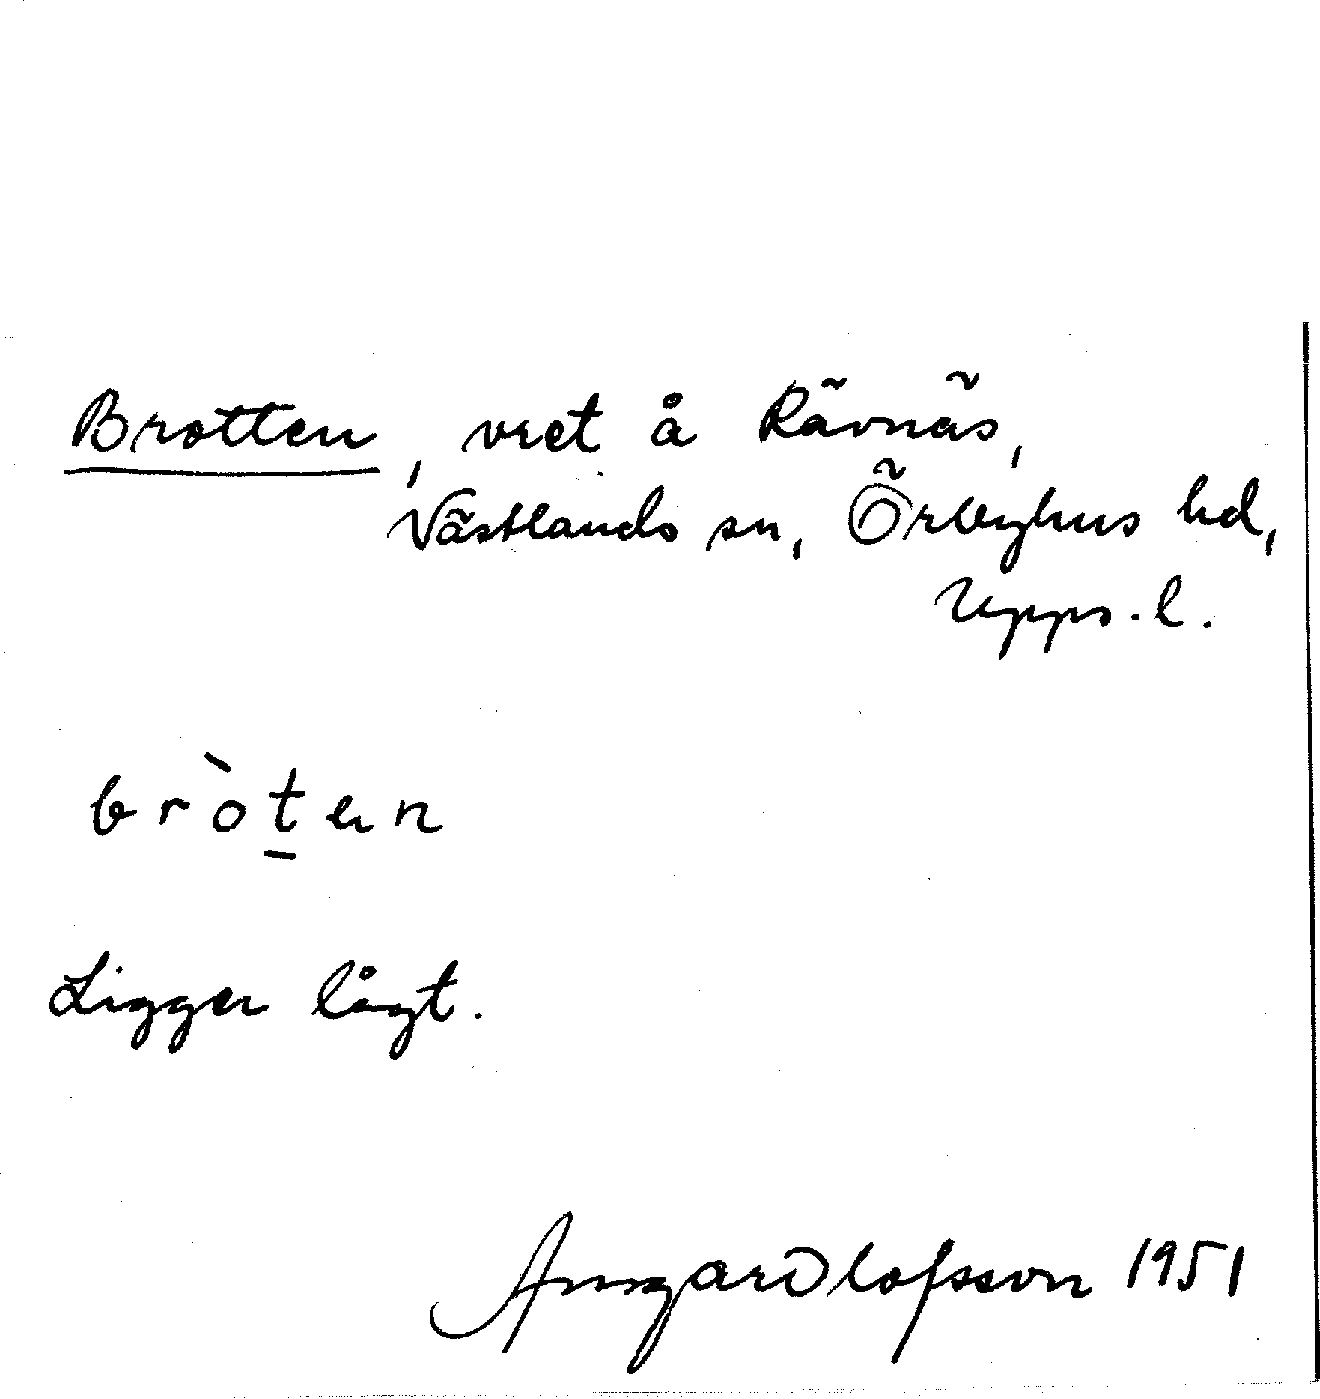 Brotten, vret å Rävnäs,
Västlands sn, Örbyhus hd,
Upps. l.
bròt̲en
Ligger lågt.
Olofsson 1951